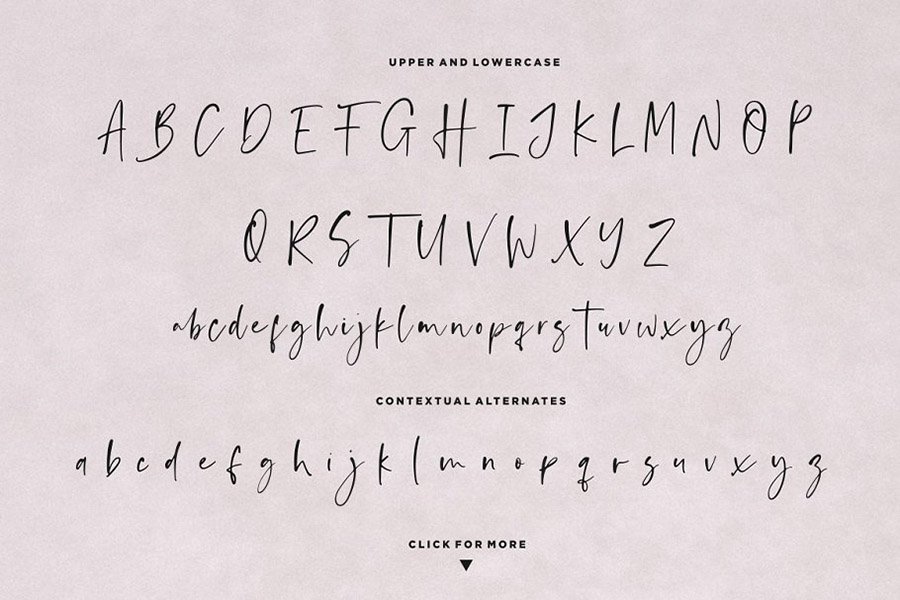 UPPER AND LOWERCASE
A B C D E F G H I J K L M N O P
Q R S T U V W X Y Z
abcdefghijklmnopqrstuvwxyz
CONTEXTUAL ALTERNATES
a b c d e f g h i j k l m n o p q r s u v x y z
CLICK FOR MORE